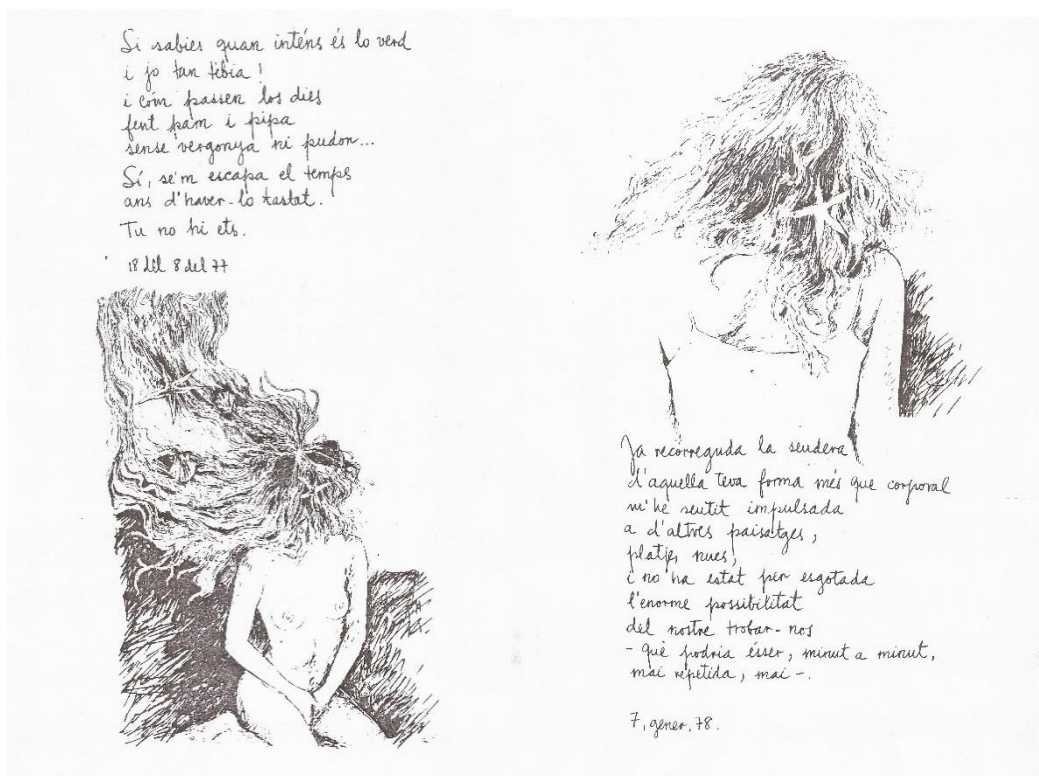 Si sabies quan inténs és lo verd
i jo tan tèbia !
i com passen los dies
fent pam i pipa
sense vergonya ni pudon...
Sí, se'm escapa el temps
ans d'haver-lo tastat.
Tu no hi ets.
18 del 8 del 77
Ja recorreguda la sendera
d'aquella teva forma més que corporal
m'he sentit impulsada
a d'altres paisatges,
platjes nues,
i no ha estat per esgotada
l'enorme possibilitat
del nostre trobar-nos
- què podria ésser, minut a minut,
mai repetida, mai -.
7, gener, 78.